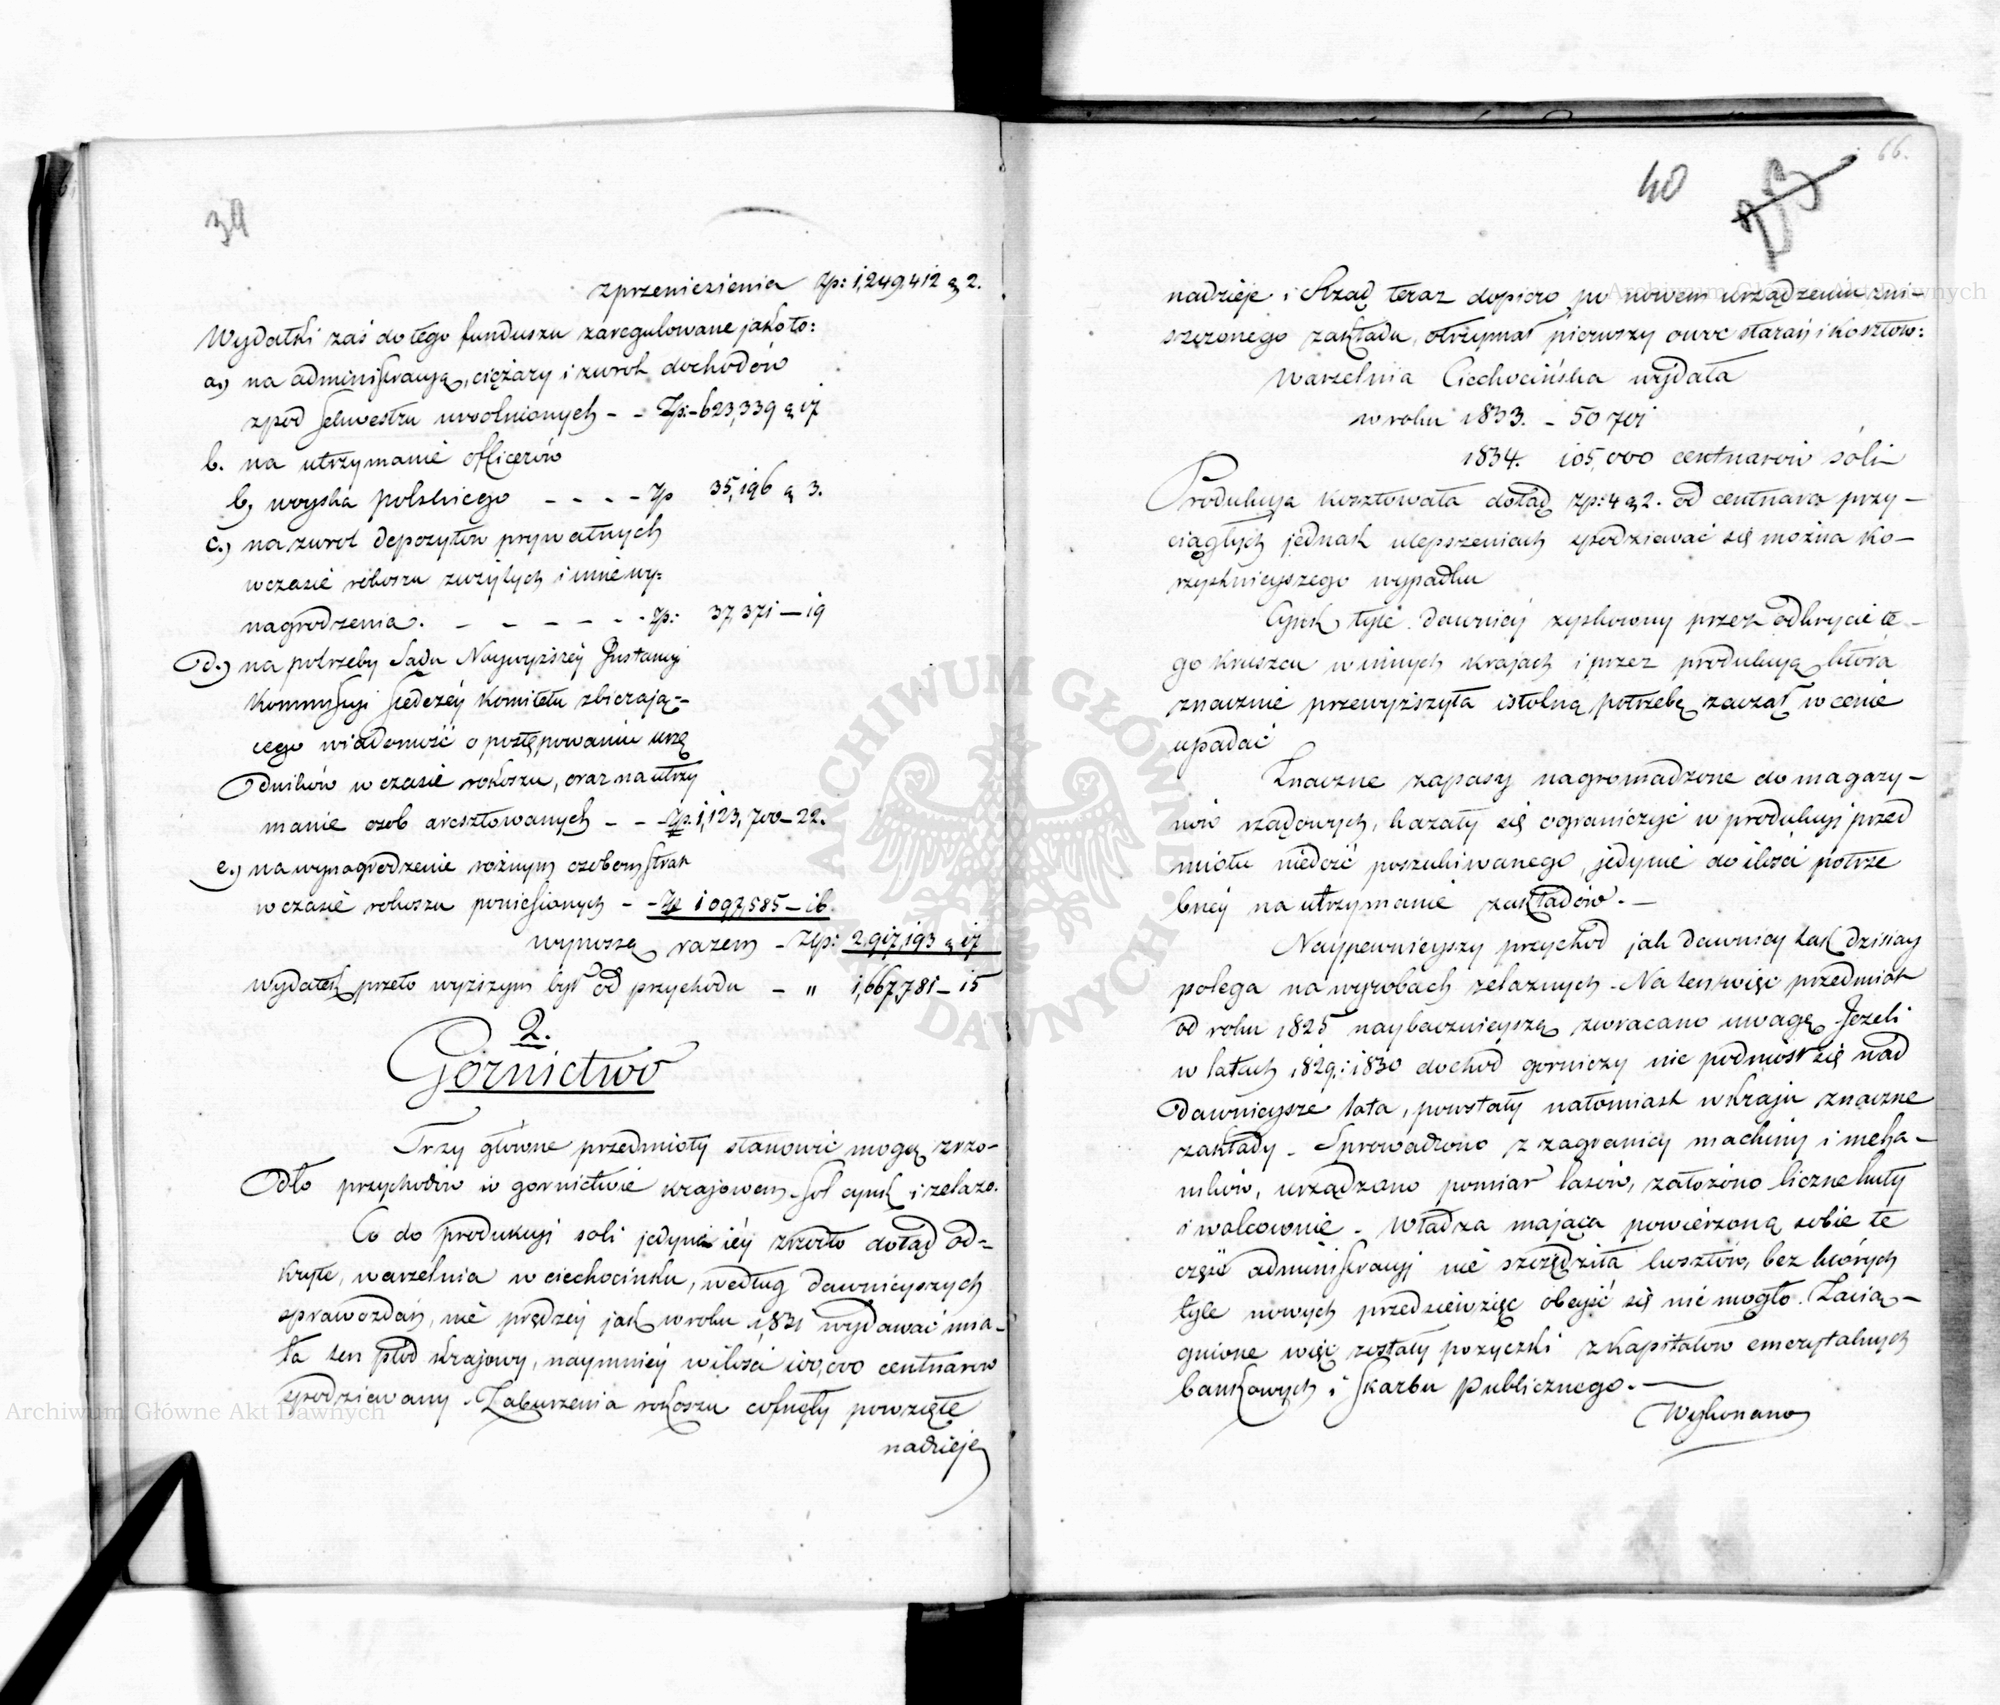 39
z przeniesienia Zp: 1,249,412 g 2.
Wydatki zaś do tego funduszu zaregulowane jakoto:
a.) na administracyą, ciężary i zwrot dochodów
z pod sekwestru uwolnionych - - Zp:- 623,339 g 17
b. na utrzymanie officerów
b, woyska polskiego - - - - Zp 35,196 g 3.
c.) na zwrot depozytów prywatnych
w czasie rokoszu zużytych i inne wy-
nagrodzenia. - - - - - - Zp: 37,371 — 19
d.) na potrzeby Sądu Naywyższey Instancyi
Kommissyi Sledczéy Komitetu zbierają-
cego wiadomość o postępowaniu urzę
dników w czasie rokoszu, oraz na utrzy
manie osob aresztowanych - - Zp. 1,123,700 - 22.
e.) na wynagrodzenie rożnym osobom strat
w czasie rokoszu poniesionych - - Zp 1 097,585 - 16.
wynoszą razem - Złp: 2,917,193 g 17
wydatek przeto wyższym był od przychodu - " 1,667,781 - 15
2.
Gornictwo
Trzy główne przedmioty stanowić mogą zrzo-
dło przychodów w gornictwie krajowem. Sol cynk i zelazo.
Co do produkcyi soli jedyne iéy zrzodło dotąd od-
kryte, warzelnia w ciechocinku, według dawnieyszych
sprawozdań, nie prędzéy jak w roku 1831 wydawać mia-
ła ten płod krajowy, naymniéy w ilości 100,000 centnarow
spodziewany. Zaburzenia rokoszu cofnęły powzięte
nadzieje
66.
40
nadzieje i Rząd teraz dopiero po nowem urządzeniu zni-
szczonego zakładu, otrzymał pierwszy owoc starań i kosztow:
Warzelnia Ciechocińska wydała
w roku 1833. - 50 701
1834. 105,000 centnarów sóli
Produkcya kosztowała dotąd zp: 4 g 2. od centnara przy -
ciągłych jednak ulepszeniach spodziewać się można ko-
rzystnieyszego wypadku
Cynk tyle dawniéj zyskowny przez odkrycie te -
go kruszcu w innych krajach i przez produkcyą która
znacznie przewyższyła istotną potrzebę zaczął w cenie
upadać
Znaczne zapasy nagromadzone do magazy-
nów rządowych, kazały się ograniczyć w produkcyi przed
miotu niedość poszukiwanego, jedynie do ilości potrze
bnéy na utrzymanie zakładów. —
Naypewnieyszy przychod jak dawniey tak dzisiay
polega na wyrobach żelaznych. Na ten więc przedmiot
od roku 1825 naybacznieyszą zwracano uwagę. Jeżeli
w latach 1829 i 1830 dochod gorniczy nie podniosł się nad
dawnieysze lata, powstały natomiast w kraju znaczne
zakłady - Sprowadzono z zagranicy machiny i mecha-
ników, urządzono pomiar lasów, założono liczne huty
i walcownie - Władza mająca powierzoną sobie te
część administracyi nie szczędziła kosztów, bez których
tyle nowych przedsięwzięc obeyść się nie mogło. Zacią-
gnione więc zostały pozyczki z kapitałów emerytalnych
bankowych i skarbu Publicznego. —
Wykonano
Archiwum Główne Akt Dawnych
Archiwum Główne Akt Dawnych
ARCHIWUM GŁÓWNE AKT DAWNYCH